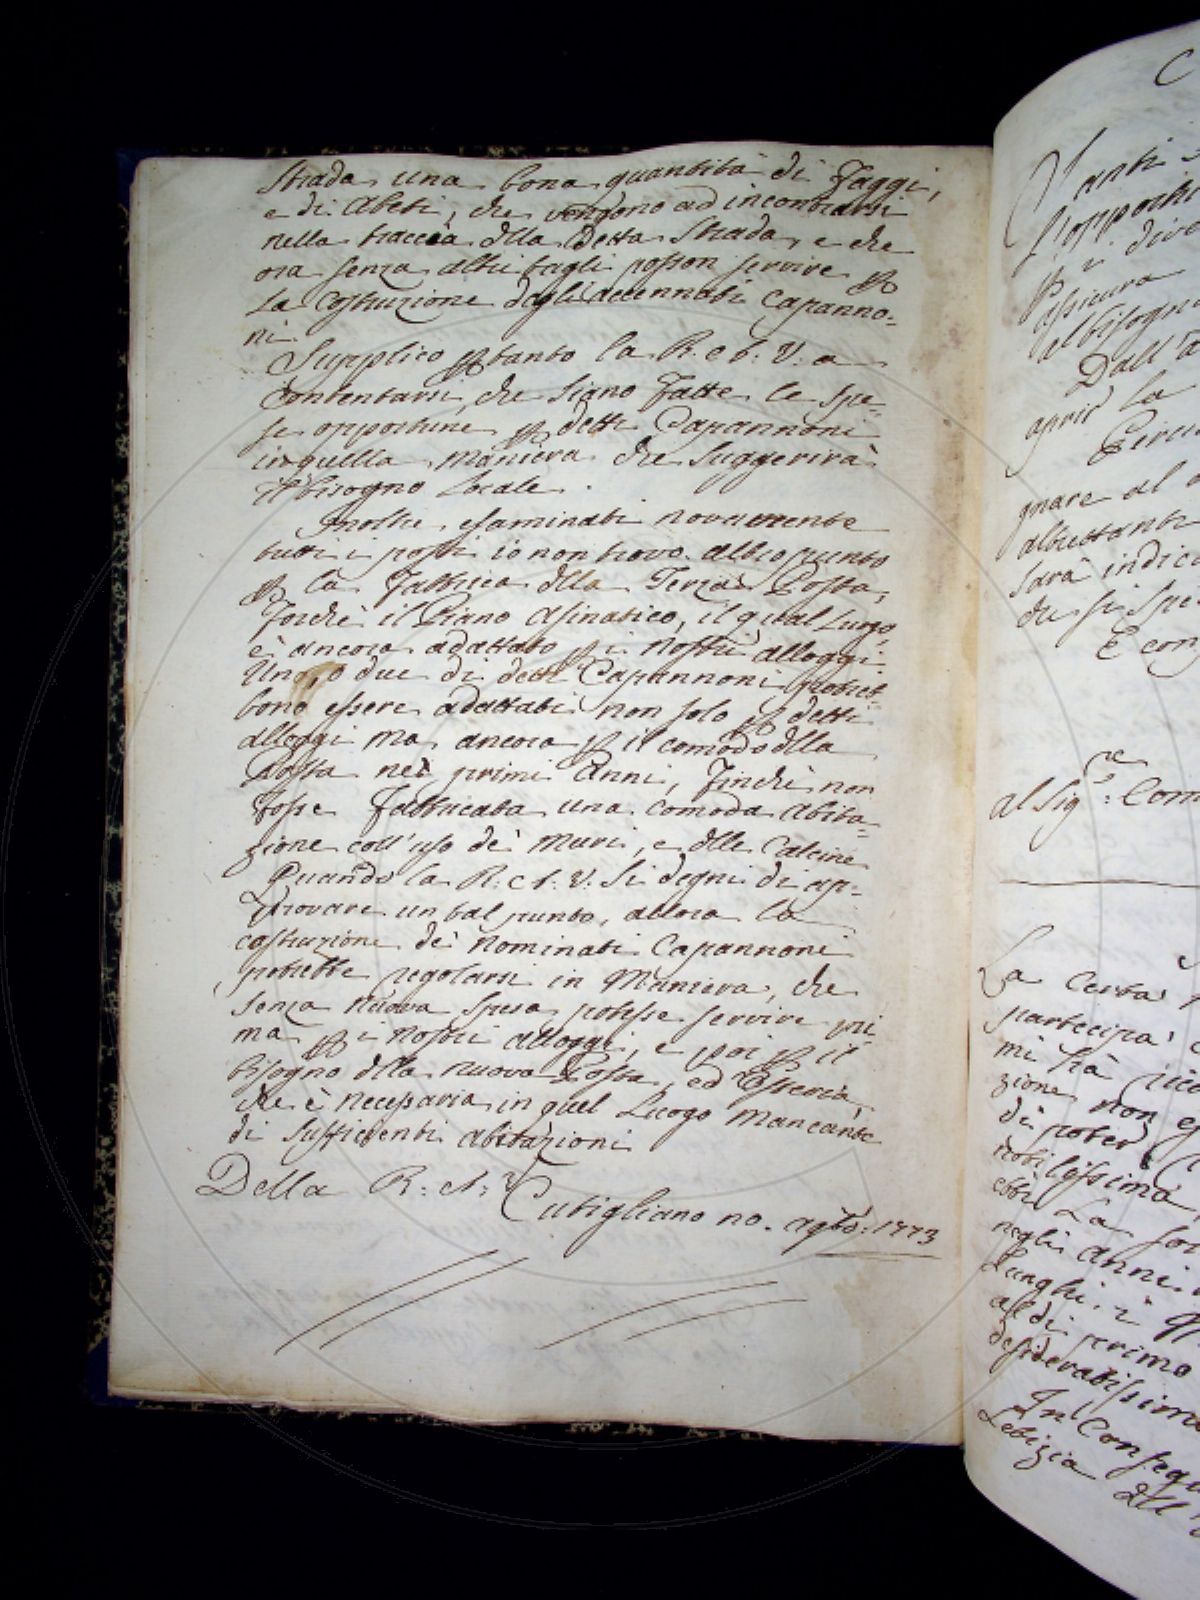 Strada una bona quantità di Faggi,
e di Abeti, che vengono ad incontrarsi
nella traccia dlla detta Strada, e che
ora senza altri tagli posson servire p
La Costruzione degli accennati Capanno-
ni.
Supplico ptanto la R: A: V: a
Contentarsi, che siano Fatte le spe-
se opportune p detti Capannoni
in quella maniera che suggerirà
il bisogno Locale.
Inoltre esaminati novamente
tutti i posti io non trovo altro punto
p la Fabbrica dlla Terza Posta,
Forchè il Piano Asinatico, il qual Luogo
è ancora adattato p i nostri alloggi.
Uno, o due di detti Capannoni potreb-
bono essere adattati non solo p detti
alloggi ma ancora p il comodo dlla
Posta nei primi Anni, Finchè non
Fosse Fabbricata una comoda abita-
zione coll'uso de' Muri, e dlle Calcine
Quando la R: A: V: si degni di ap-
provare un tal punto, allora la
costruzione de' nominati Capannoni
potrebbe regolarsi in Maniera, che
senza nuova spesa potesse servire pri-
ma p i nostri alloggi, e poi p il
bisogno dlla nuova Posta, ed Osteria,
che è necessaria in quel Luogo Mancante
di sufficienti abitazioni
Della R: A: V
Cutigliano no. agto: 1773
C
diver
assicura
al bisogno
Dall'a
aprir la
gnare al
altrettanti
sarà indica
che si spe
E con
al Sigre: Com
La Certa
partecipa
mi hà
zione non
di poter
nobilissima
ebbi La for
negli anni
Lunghi,
al dì primo
desideratissima
In Consegu
Letizia dll